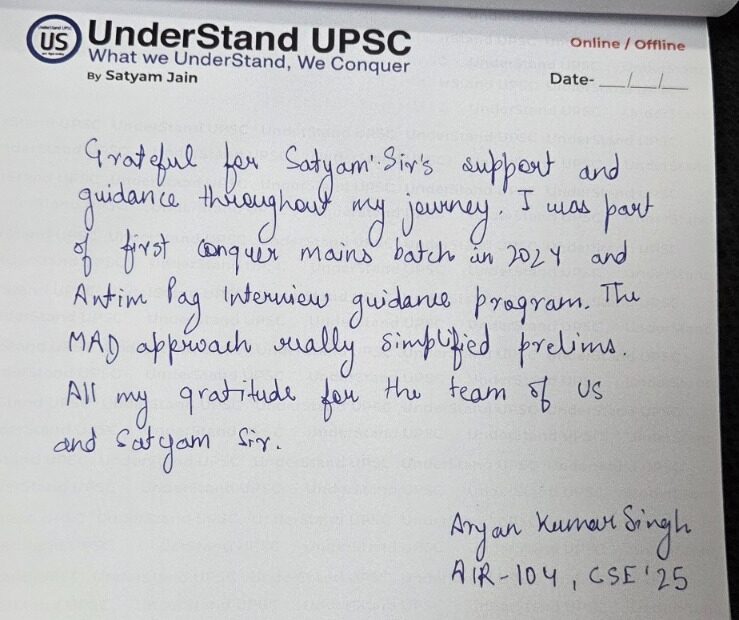 US
UnderStand UPSC
What we UnderStand, We Conquer
By Satyam Jain
Online / Offline
Date- __/__/__
Grateful for Satyam Sir's support and
guidance throughout my journey. I was part
of first conquer mains batch in 2024 and
Antim Pag Interview guidance program. The
MAD approach really simplified prelims.
All my gratitude for the team of US
and Satyam Sir.
Aryan Kumar Singh
AIR-104, CSE'25